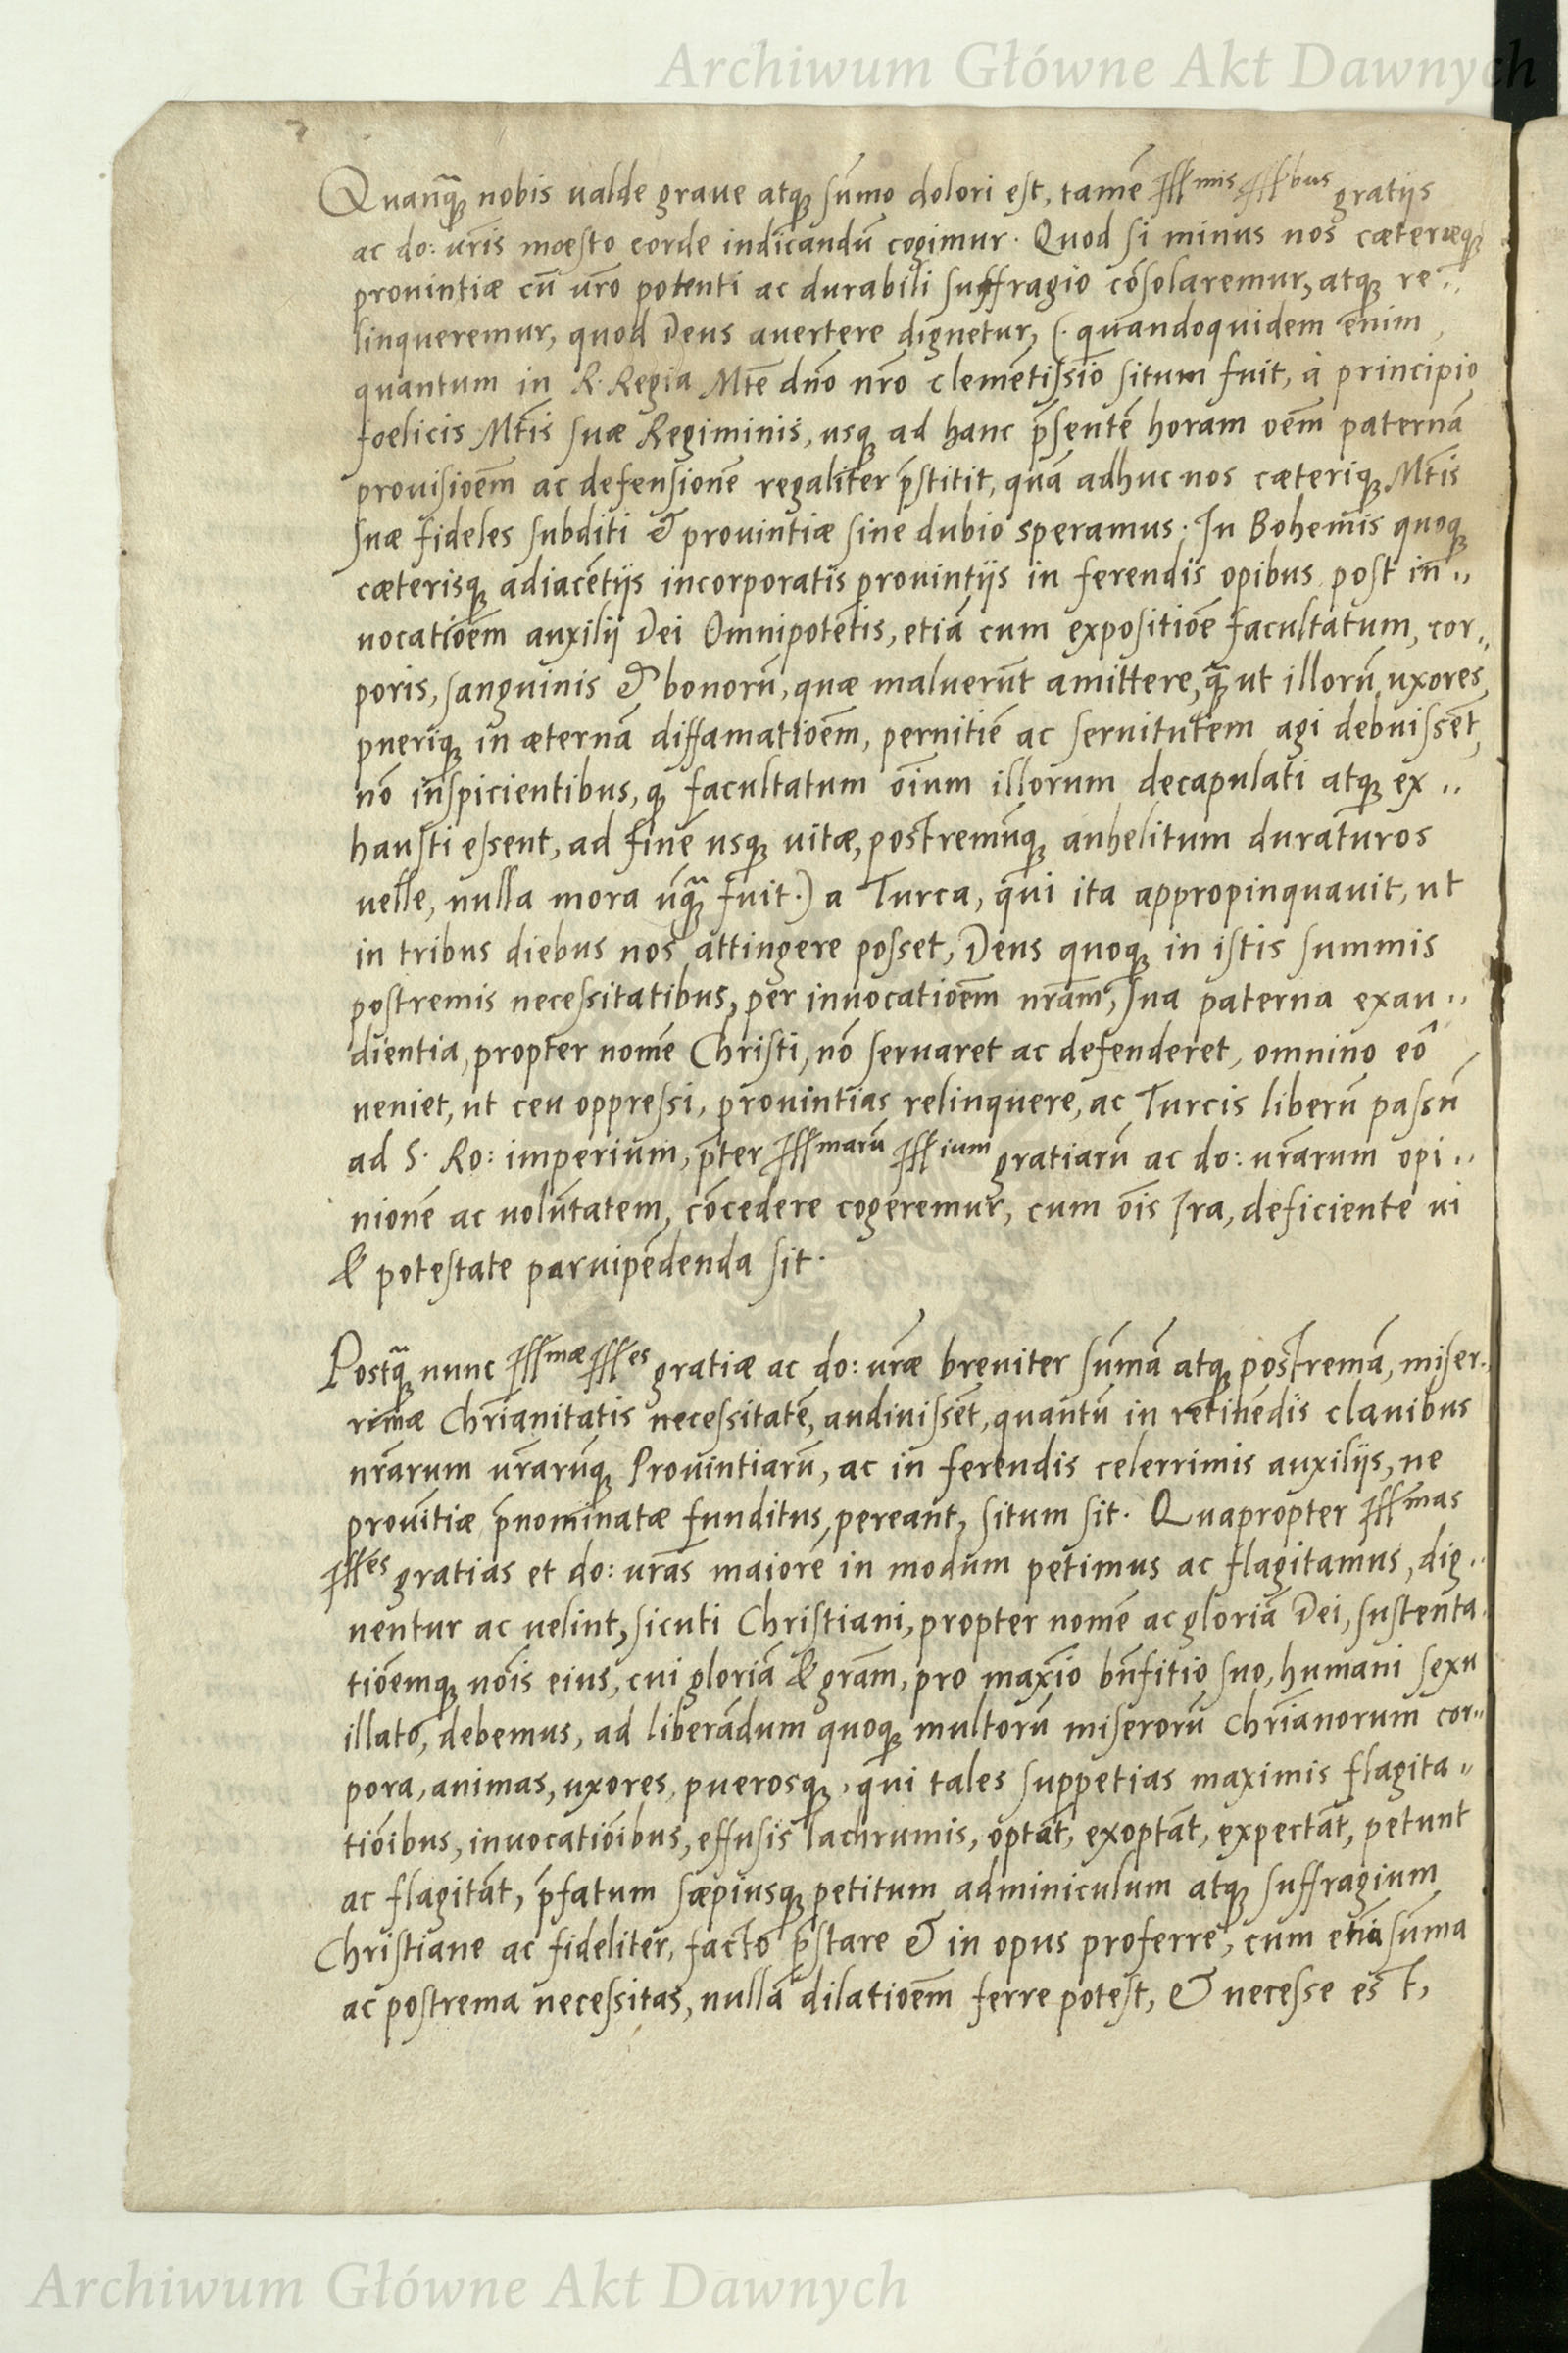 Archiwum Główne Akt Dawnych
Quanq̃ȝ nobis valde graue atqȝ sūmo dolori est, tamē Illmis Illbus gratijs
ac do: vr̄is mœsto corde indicandū cogimur. Quod si minus nos cæteræqȝ
prouintiæ cū vr̄o potenti ac durabili suffragio cōsolaremur, atqȝ re..
linqueremur, quod Deus auertere dignetur, (. quandoquidem enim
quantum in R. Regia Mte dn̄o nr̄o clemētissīo situm fuit, à principio
fœlicis Mtis suæ Regiminis, usqȝ ad hanc p̄sentē horam oēm paternā
prouisiōem ac defensionē regaliter p̄stitit, quā adhuc nos cæteriqȝ Mtis
suæ fideles subditi & prouintiæ sine dubio speramus. In Bohemis quoqȝ
cæterisqȝ adiacētijs incorporatis prouintijs in ferendis opibus post in..
uocatiōem auxilij Dei Omnipotētis, etiā cum expositiōe facultatum, cor..
poris, sanguinis & bonorū, quæ maluerūt amittere, q̃ȝ ut illorū uxores,
pueriqȝ in æternā diffamatiōem, pernitiē ac seruitutem agi debuissēt,
nō inspicientibus, qȝ facultatum oīum illorum decapulati atqȝ ex..
hausti essent, ad finē usqȝ uitæ, postremūqȝ anhelitum duraturos
uelle, nulla mora ūq̃ȝ fuit.) a Turca, qui ita appropinquauit, ut
in tribus diebus nos attingere posset, Deus quoqȝ in istis summis
postremis necessitatibus, per inuocatiōem nr̄am, sua paterna exau..
dientia, propter nomē Christi, nō seruaret ac defenderet, omnino eō
ueniet, ut ceu oppressi, prouintias relinquere, ac Turcis liberū passū
ad S. Ro: imperium, p̄ter Illmarū Illium gratiarū ac do: vr̄arum opi..
nionē ac uolūtatem, cōcedere cogeremur, cum oīs Ira, deficiente ui
& potestate paruipēdenda sit.
Postq̃ȝ nunc Illmæ Illes gratiæ ac do: vr̄æ breuiter sūmā atqȝ postremā, miser..
rimæ Chr̄ianitatis necessitatē, audiuissēt, quantū in retinēdis clauibus
nr̄arum vr̄arūqȝ Prouintiarū, ac in ferendis celerrimis auxilijs, ne
prouītiæ p̄nominatæ funditus pereant, situm sit. Quapropter Illmas
Illes gratias et do: vr̄as maiorē in modum petimus ac flagitamus, dig..
nentur ac uelint, sicuti Christiani, propter nomē ac gloriā Dei, sustenta.
tiōemqȝ noīs eius, cui gloriā & gr̄am, pro maxīo bn̄fitio suo, humani sexu
illato, debemus, ad liberādum quoqȝ multorū miserorū Chr̄ianorum cor..
pora, animas, uxores, puerosqȝ, qui tales suppetias maximis flagita..
tiōibus, inuocatiōibus, effusis lachrumis, optāt, exoptāt, expectāt, petunt
ac flagitāt, p̄fatum sæpiusqȝ petitum adminiculum atqȝ suffragium
Christiane ac fideliter, facto p̄stare & in opus proferre, cum etiā sūma
ac postrema necessitas, nullā dilatiōem ferre potest, & necesse est,
Archiwum Główne Akt Dawnych